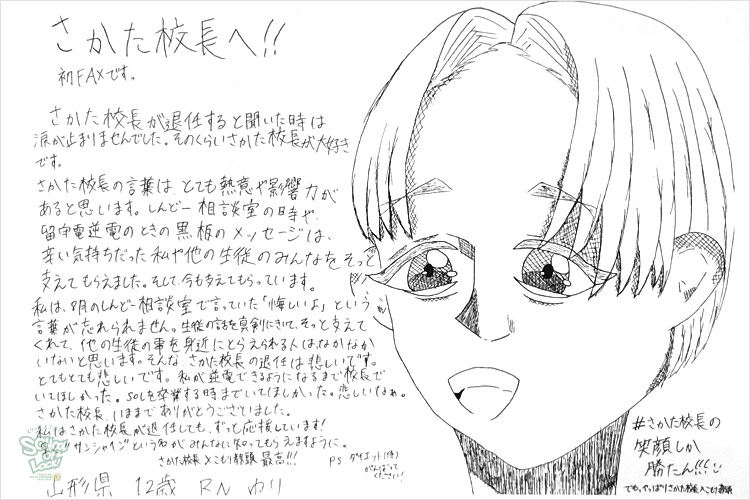 さかた校長へ!!
初FAXです。
さかた校長が退任すると聞いた時は
涙が止まりませんでした。そのくらいさかた校長が大好き
です。
さかた校長の言葉は、とても熱意や影響力が
あると思います。しんどー相談室の時や、
留守電逆電のときの黒板のメッセージは、
辛い気持ちだった私や他の生徒のみんなをそっと
支えてもらえました。そして、今も支えてもらっています。
私は、8月のしんどー相談室で言っていた「悔しいよ」という
言葉が忘れられません。生徒の話を真剣にきいて、そっと支えて
くれて、他の生徒の事を身近にとらえられる人はなかなか
いないと思います。そんな、さかた校長の退任は悲しいです。
とてもとても悲しいです。私が逆電できるようになるまで校長で
いてほしかった。SOLを卒業する時までいてほしかった。悲しいなぁ。
さかた校長、いままでありがとうございました。
私はさかた校長が退任しても、ずっと応援しています!
サンシャインという名がみんなに知ってもらえますように。
さかた校長×こもり教頭 最高!!!
PS ダイエット(体)
がんばって
ください!
山形県 12歳 RN ゆり
#さかた校長の
笑顔しか
勝たん!!!
でも、やっぱりさかた校長×こもり教頭